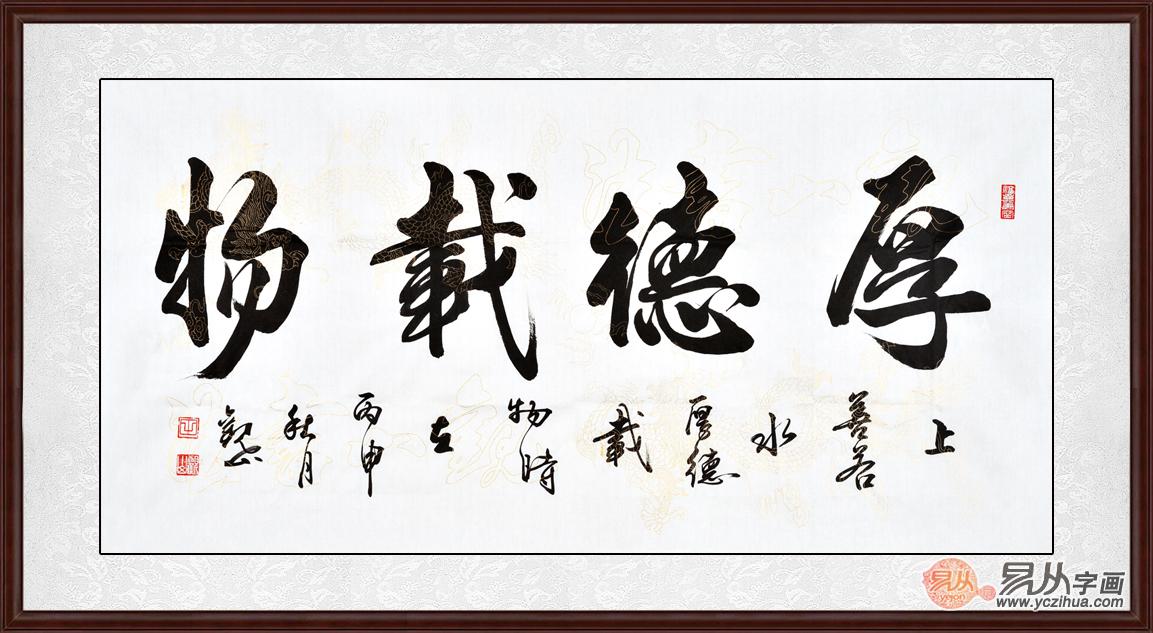 厚德載物
上善若水厚德載物時在丙申秋月
易从
yexon
易从字画
www.yczihua.com